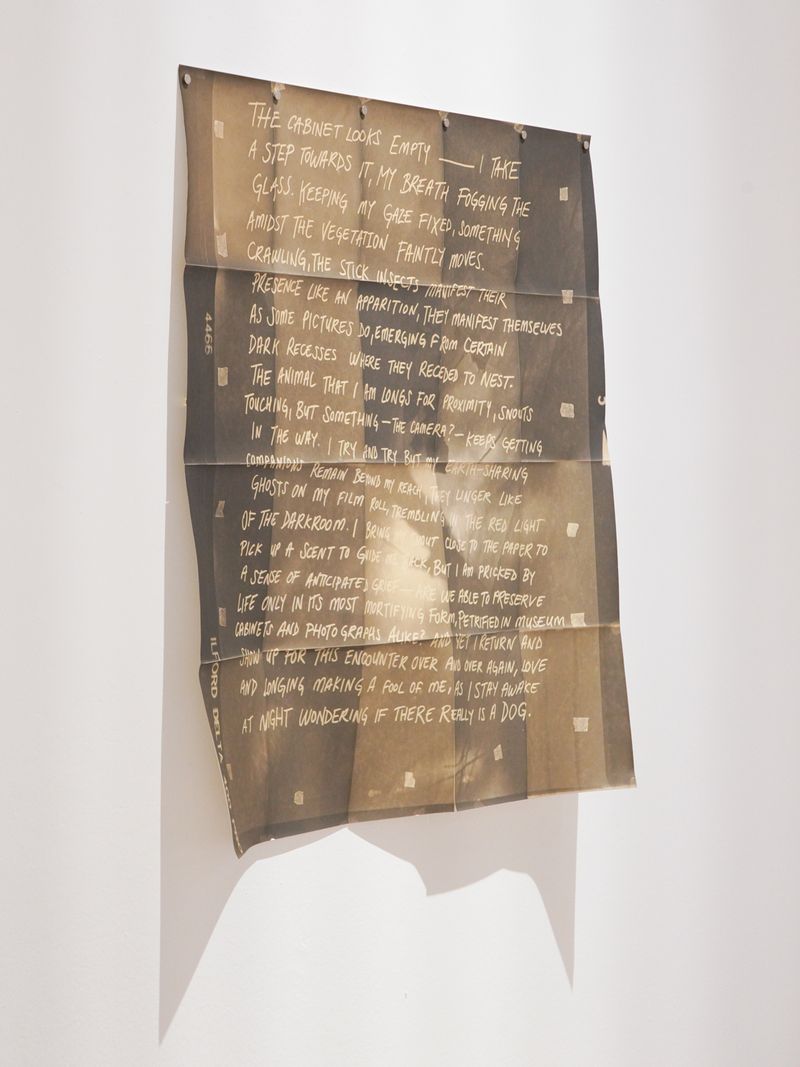 THE CABINET LOOKS EMPTY — I TAKE
A STEP TOWARDS IT, MY BREATH FOGGING THE
GLASS. KEEPING MY GAZE FIXED, SOMETHING
AMIDST THE VEGETATION FAINTLY MOVES.
CRAWLING, THE STICK INSECTS MANIFEST THEIR
PRESENCE LIKE AN APPARITION, THEY MANIFEST THEMSELVES
AS SOME PICTURES DO, EMERGING FROM CERTAIN
DARK RECESSES WHERE THEY RECEDED TO NEST.
THE ANIMAL THAT I AM LONGS FOR PROXIMITY, SNOUTS
TOUCHING, BUT SOMETHING – THE CAMERA? – KEEPS GETTING
IN THE WAY. I TRY AND TRY BUT MY EARTH-SHARING
COMPANIONS REMAIN BEYOND MY REACH, THEY LINGER LIKE
GHOSTS ON MY FILM ROLL, TREMBLING IN THE RED LIGHT
OF THE DARKROOM. I BRING SNOUT CLOSE TO THE PAPER TO
PICK UP A SCENT TO GUIDE ME BACK, BUT I AM PRICKED BY
A SENSE OF ANTICIPATED GRIEF — ARE WE ABLE TO PRESERVE
LIFE ONLY IN ITS MOST MORTIFYING FORM, PETRIFIED IN MUSEUM
CABINETS AND PHOTOGRAPHS ALIKE? AND YET I RETURN AND
SHOW UP FOR THIS ENCOUNTER OVER AND OVER AGAIN, LOVE
AND LONGING MAKING A FOOL OF ME, AS I STAY AWAKE
AT NIGHT WONDERING IF THERE REALLY IS A DOG.
4466
ILFORD DELTA